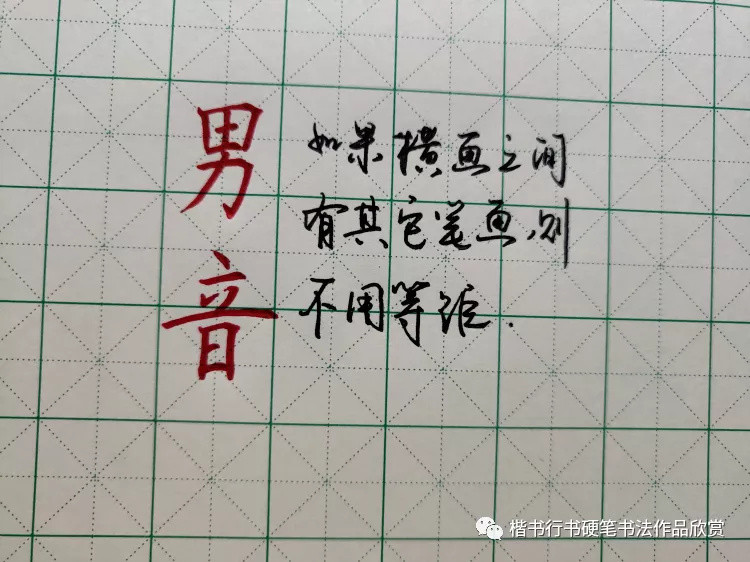 男
音
如果横画之间
有其它笔画,则
不用等距.
楷书行书硬笔书法作品欣赏